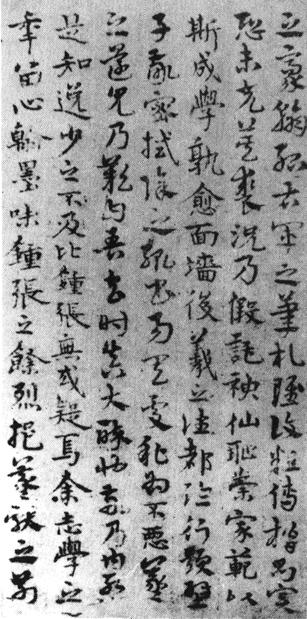 之豪翰紹右軍之筆札雖復粗傳楷則實
恐未克箕裘況乃假託神仙恥崇家範以
斯成學孰愈面墻後羲之往都臨行題壁
子敬密拭除之輒書易其處私為不惡羲
之還見乃歎曰吾去時真大醉也敬乃內慙
是知逸少之不及比鍾張無或疑焉余志學之
年留心翰墨味鍾張之餘烈挹羲獻之前